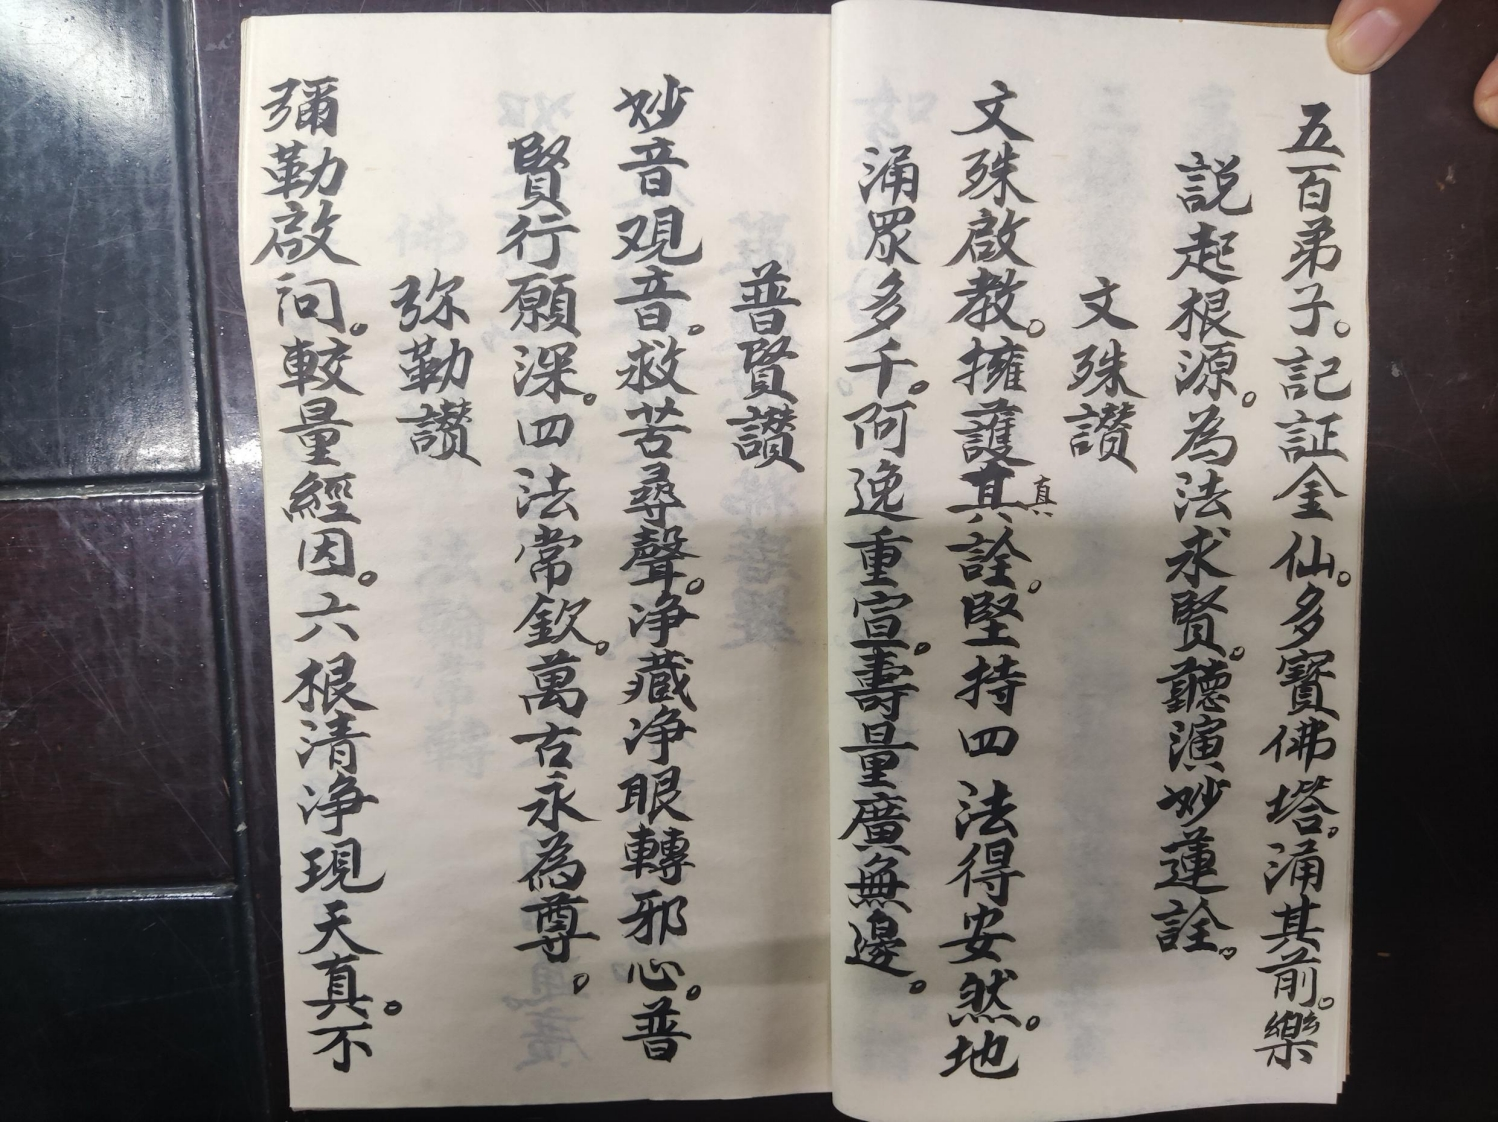 五百弟子。記証金仙。多寶佛塔。涌其前。樂
説起根源。為法求賢。聽演妙蓮詮。
文殊讃
文殊啟教。擁護其真詮。堅持四法得安然。地
涌眾多千。阿逸重宣。壽量廣無邊。
普賢讃
妙音观音。救苦尋聲。净藏净眼轉邪心。普
賢行願深。四法常欽。萬古永為尊。
弥勒讃
彌勒啟问。較量經因。六根清净現天真。不